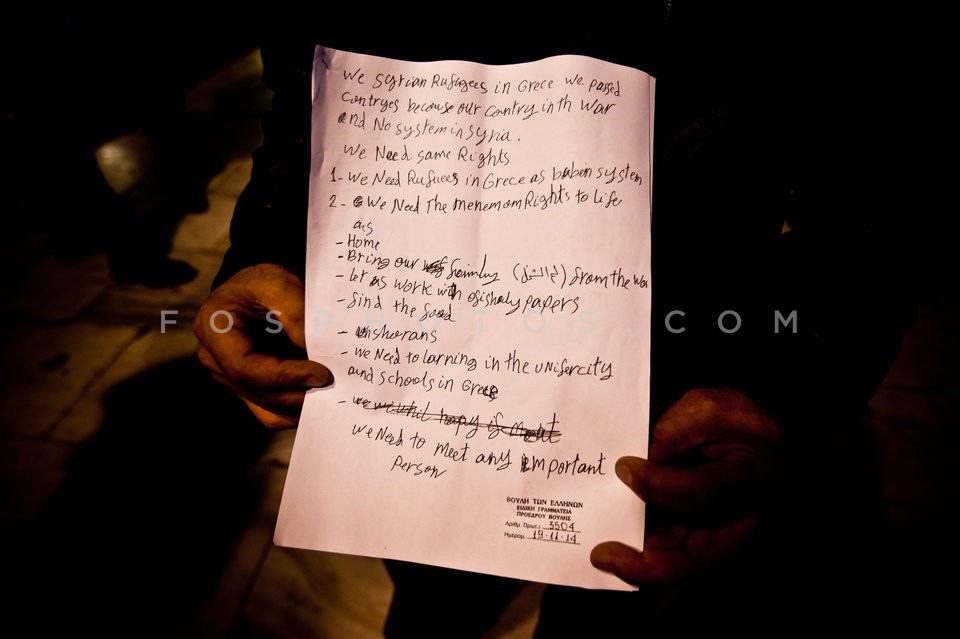 We Syrian Rufugees in Grece we passed
Contryes because our Contry in th War
and No system in Syria.
We Need same Rights
1- We Need Rufuees in Grece as system
2- We Need The Menemom Rights to Life
as
- Home
- Bring our faimluy (لم الشمل) from the war
- let us work with ofishaly papers
- Find the food
- unsheorans
- We Need to larning in the unifercity
and schools in Grece
- we if
We Need to meet any important
Person
ΒΟΥΛΗ ΤΩΝ ΕΛΛΗΝΩΝ
ΕΙΔΙΚΗ ΓΡΑΜΜΑΤΕΙΑ
ΠΡΟΕΔΡΟΥ ΒΟΥΛΗΣ
Αριθμ. Πρωτ.: 3504
Ημερομ. 19.11.14
FOSPHOTOS.COM